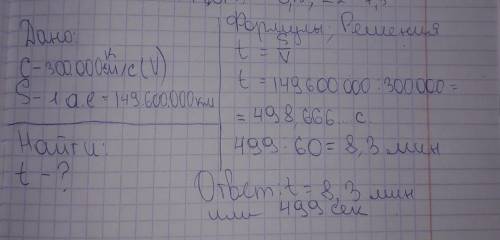 Дано:
C-300000км/с(V)
S-1 а.е=149.600.000км
Найти:
t-?
Формулы, Решения
t = S/V
t=149,600 000:300000=
=498,666... с.
499·60=8,3 мин
Ответ: t=8,3 мин
или 499 сек